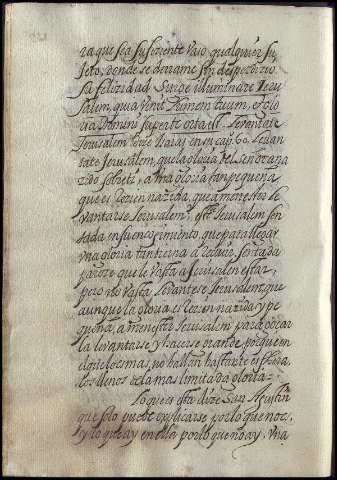 ra que sea suficiente vaso qualquier su
jeto, donde se derrame sin desperdicio
la felizidad. Surge illuminare Jeru
salem, quia venit lumen tuum, et glo
ria Domini super te orta est. Levantate
Jerusalem dize Isaias en su cap. 60. Levan
tate Jerusalem, que la gloria del señor a na
zido sobre ti, a una gloria tan pequeña
que es rezien nazida, que a menester le
vantarse Jerusalem? este Jerusalem sen
tada en su encogimiento, que para llegar
una gloria tan tierna a rezivir sentada
pareze que le vasta a Jerusalen estar,
pero no vasta levantese Jerusalem, que
aunque la gloria es rezien nazida, y pe
queña, a menester Jerusalem para
la levantarse y hacerse grande, porque en
aquello es mas, no hallan bastante esfera
los llenos de la mas limitada gloria.
Lo que es esta dize San Agustin
que solo puede explicarse por lo que no es,
y lo que ay en ella por lo que no ay, una